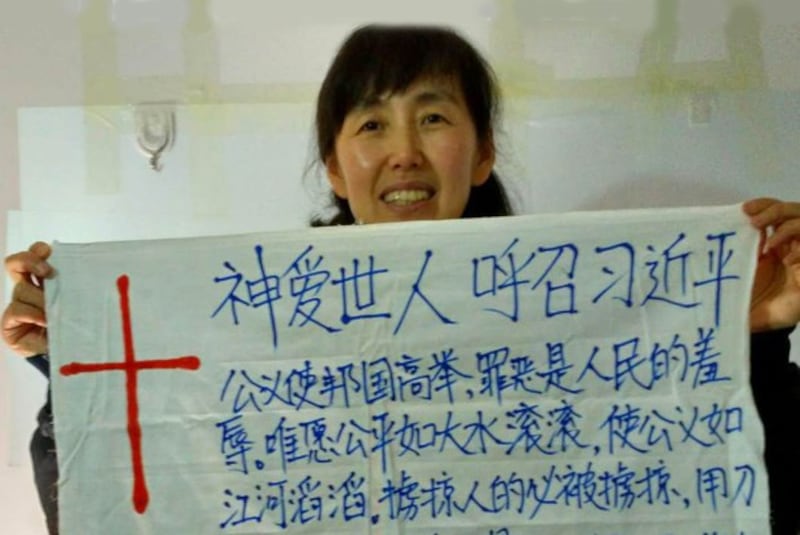 神爱世人 呼召习近平
公义使邦国高举,罪恶是人民的羞
辱。唯愿公平如大水滚滚,使公义如
江河滔滔。掳掠人的必被掳掠,用刀